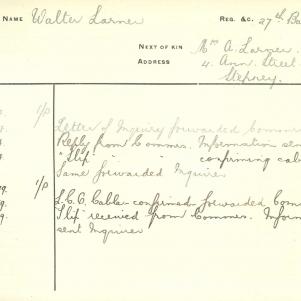 NAME Walter Larner REG. &C. 27th Ba
NEXT OF KIN Mrs A. Larner.
ADDRESS 4. Ann Street.
Stepney.
1/P Letter of Inquiry forwarded Common
Reply from Commr. Information sen
"Slip" " " confirming cab
Same forwarded Inquirer
9. 1/P L.C.O. Cable confirmed forwarded Com
9. "Slip" received from Commr. Inform
sent Inquirer